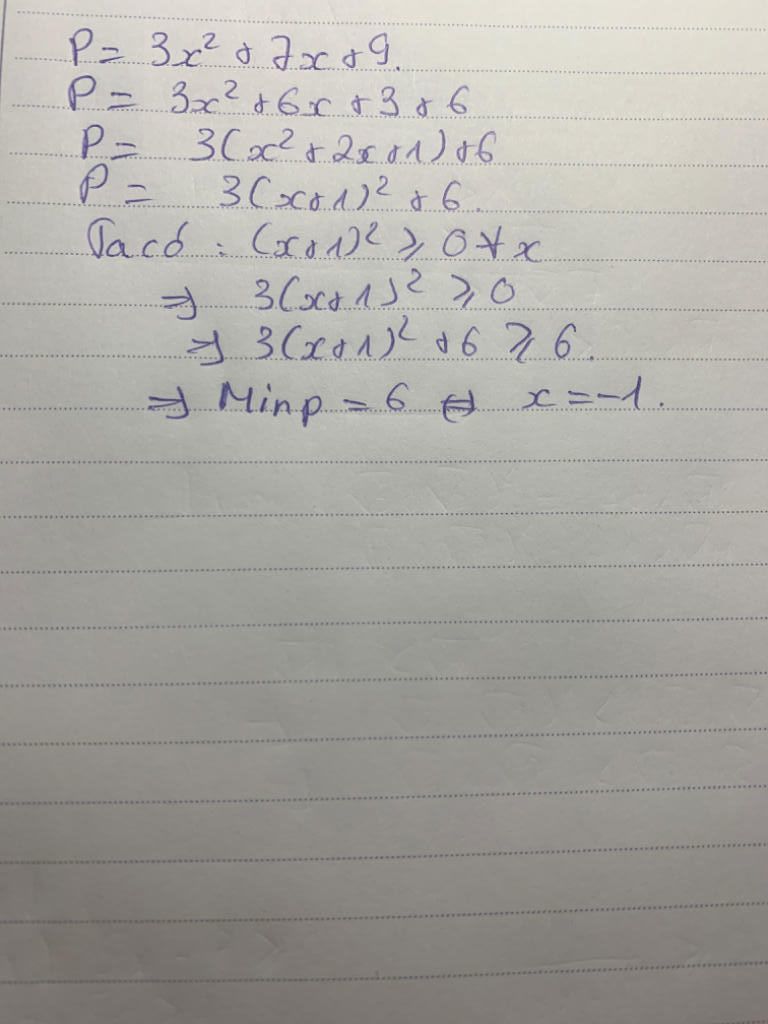 P = 3x² + 7x + 9.
P = 3x² + 6x + 3 + 6
P = 3(x² + 2x + 1) + 6
P = 3(x + 1)² + 6.
Ta có : (x + 1)² ⩾ 0 ∀ x
⇒ 3(x + 1)² ⩾ 0
⇒ 3(x + 1)² + 6 ⩾ 6.
⇒ Min p = 6 ⇔ x = -1.